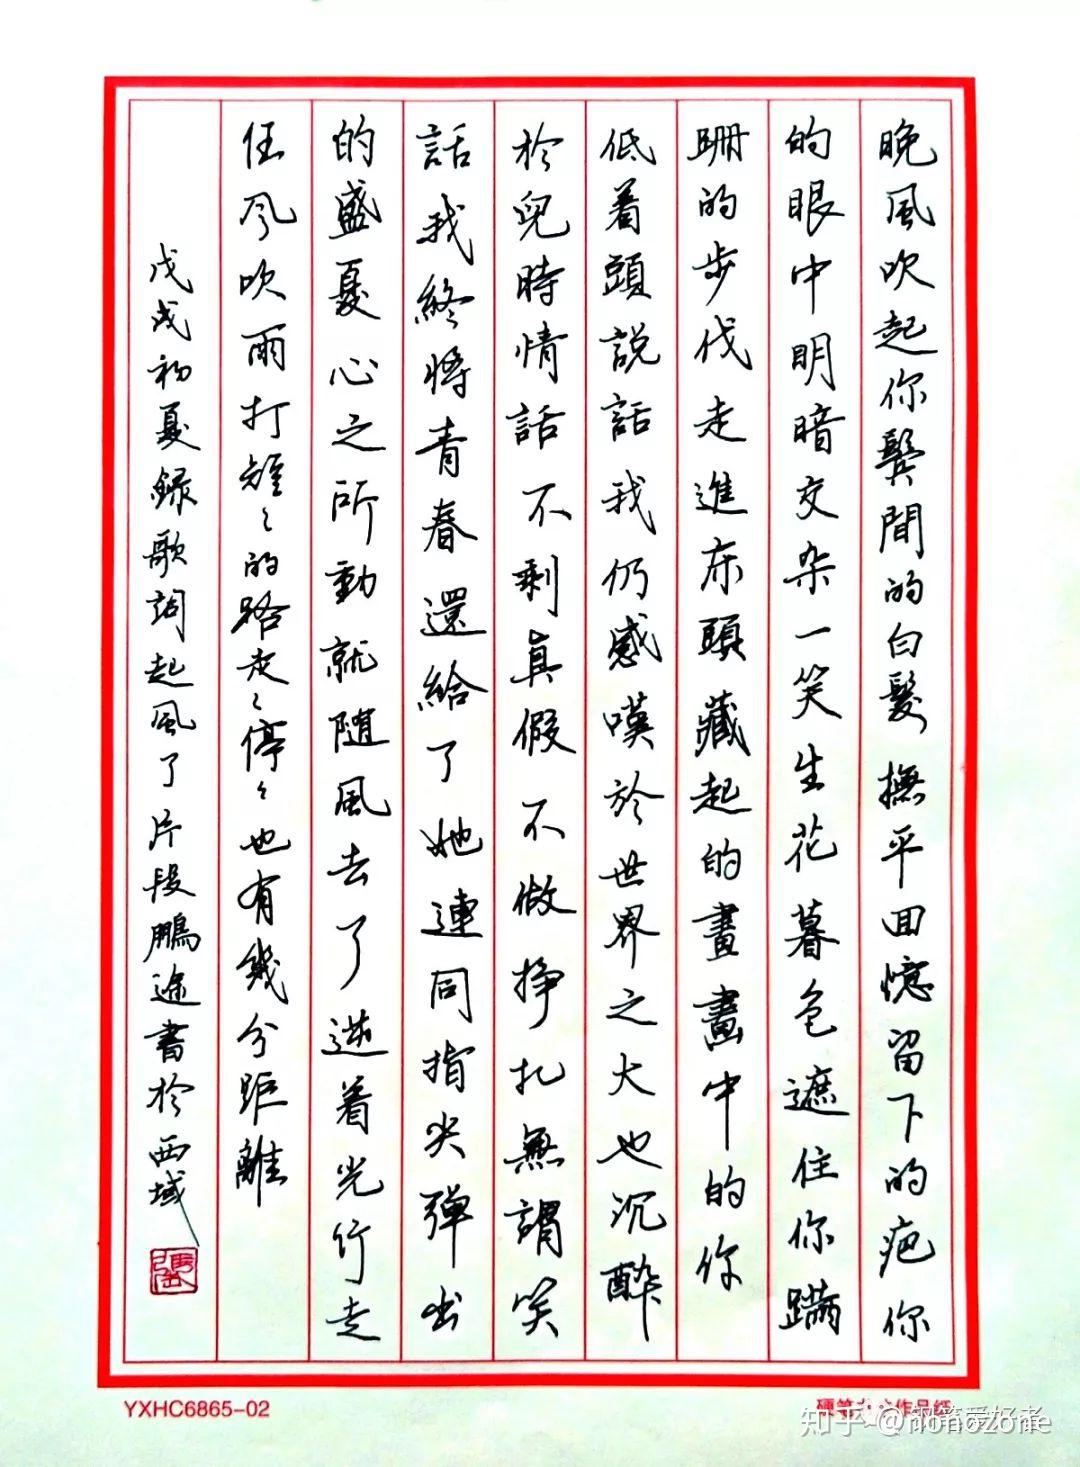 晚風吹起你鬓間的白髮撫平回憶留下的疤你
的眼中明暗交杂一笑生花暮色遮住你蹒
跚的步伐走進床頭藏起的畫畫中的你
低着頭説話我仍感嘆於世界之大也沉醉
於兒時情話不剩真假不做挣扎無謂笑
話我終將青春還給了她連同指尖弹出
的盛夏心之所動就隨風去了逆着光行走
任风吹雨打短〻的路走〻停〻也有幾分距離
戊戌初夏録歌詞起風了片段鵬途書於西域
YXHC6865-02
知乎 @nonozone